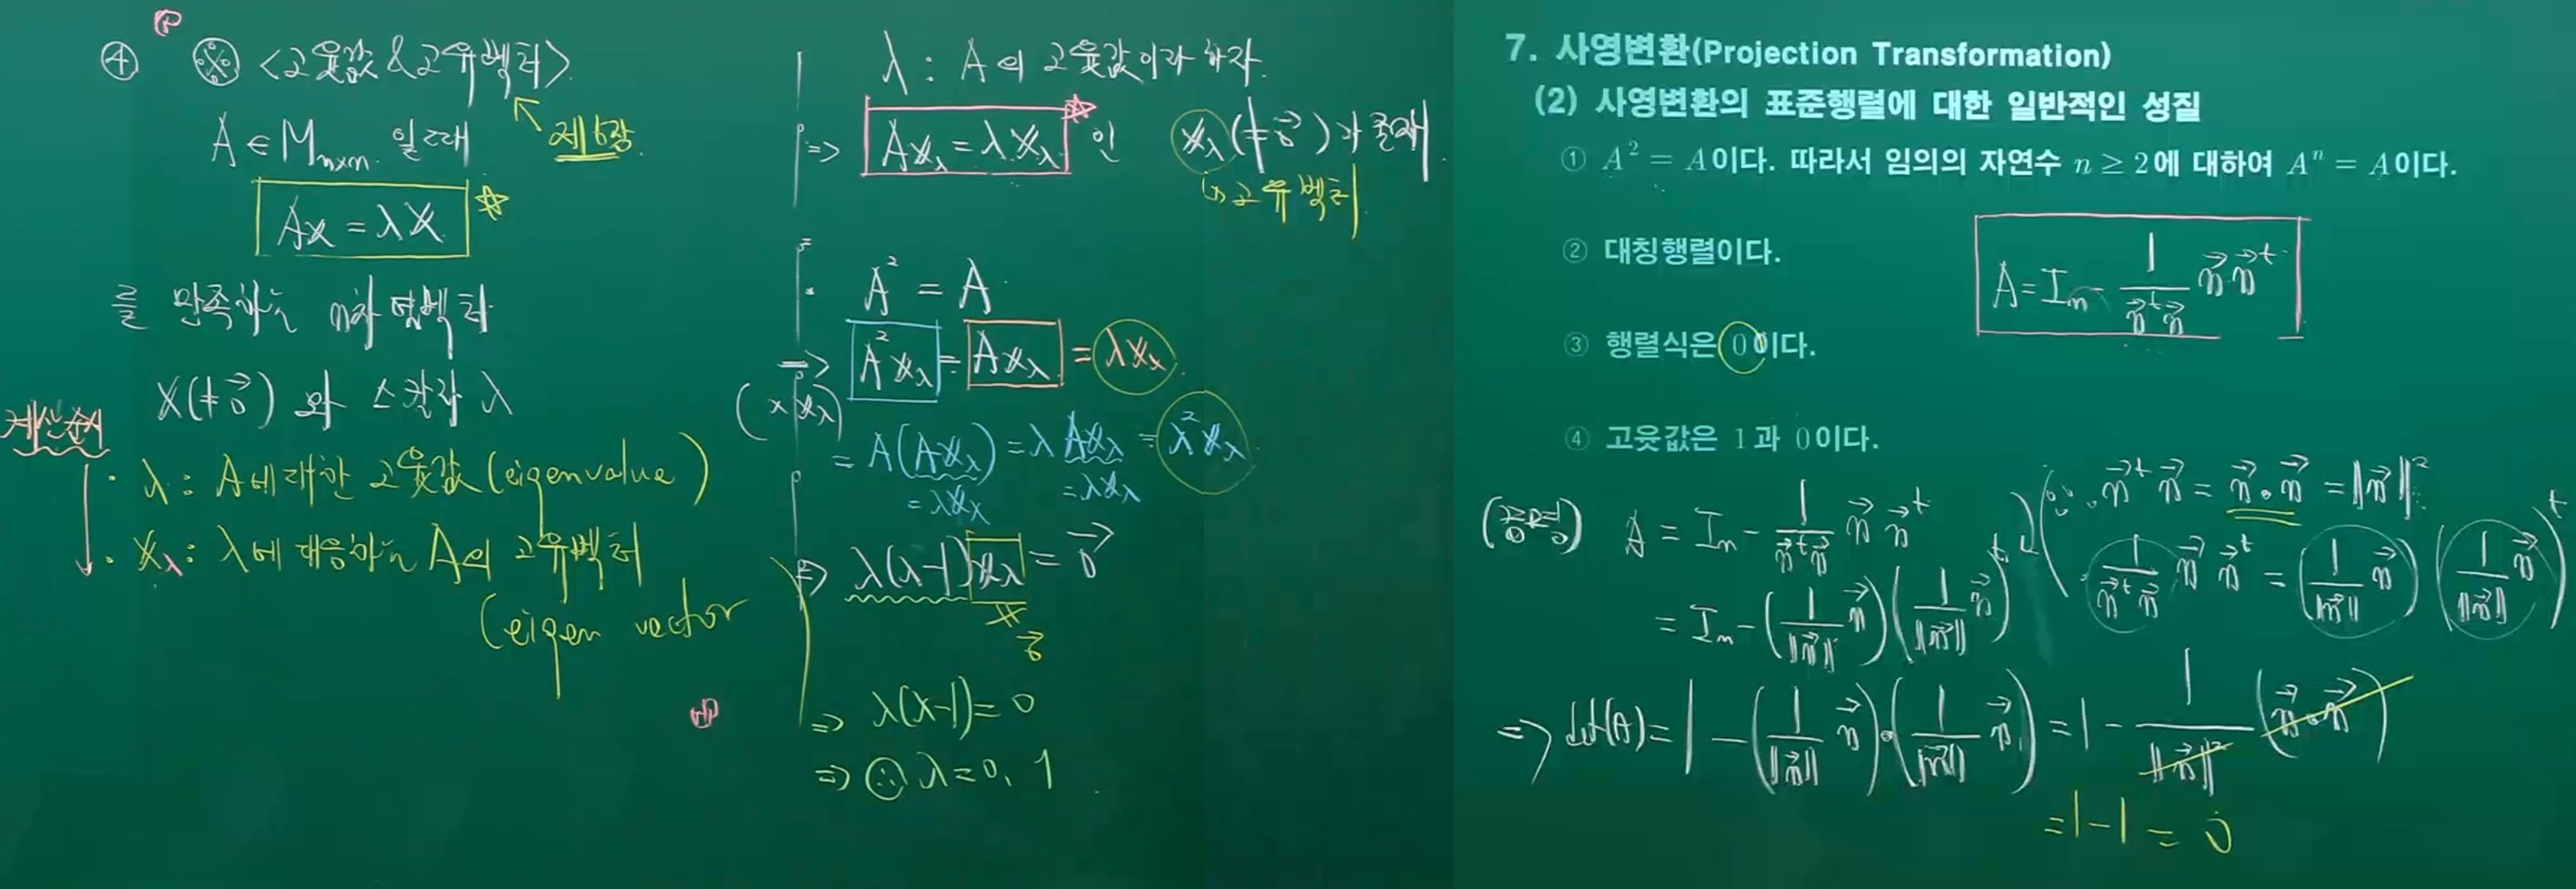 ④ ※ <고윳값 & 고유벡터>
↖ 제6장
A ∈ M_{n×n} 일 때
Ax = λx ☆
를 만족하는 n차 열벡터
x(≠0⃗) 와 스칼라 λ
계산순서
· λ : A에 대한 고윳값 (eigenvalue)
· x_λ : λ에 대응하는 A의 고유벡터
(eigen vector
λ : A의 고윳값이라 하자.
=> Ax_λ = λx_λ ☆ 인 x_λ(≠0⃗)가 존재
고유벡터
A² = A
=> A²x_λ = Ax_λ = λx_λ
(× x_λ)
= A(Ax_λ) = λAx_λ = λ²x_λ
= λx_λ = λx_λ
=> λ(λ-1)x_λ = 0⃗
≠
0⃗
=> λ(λ-1) = 0
=> ∴ λ = 0, 1
7. 사영변환(Projection Transformation)
(2) 사영변환의 표준행렬에 대한 일반적인 성질
① A² = A이다. 따라서 임의의 자연수 n ≥ 2에 대하여 Aⁿ = A이다.
② 대칭행렬이다.
A = I_n - 1/(n⃗^t n⃗) n⃗ n⃗^t
③ 행렬식은 0이다.
④ 고윳값은 1과 0이다.
A = I_n - 1/(n⃗^t n⃗) n⃗ n⃗^t
(∵ n⃗^t n⃗ = n⃗ · n⃗ = ||n⃗||²
1/(n⃗^t n⃗) n⃗ n⃗^t = (1/||n⃗|| n⃗)(1/||n⃗|| n⃗)^t
= I_n - (1/||n⃗|| n⃗)(1/||n⃗|| n⃗)^t
=> det(A) = 1 - (1/||n⃗|| n⃗)·(1/||n⃗|| n⃗) = 1 - 1/||n⃗||² (n⃗·n⃗)
= 1 - 1 = 0